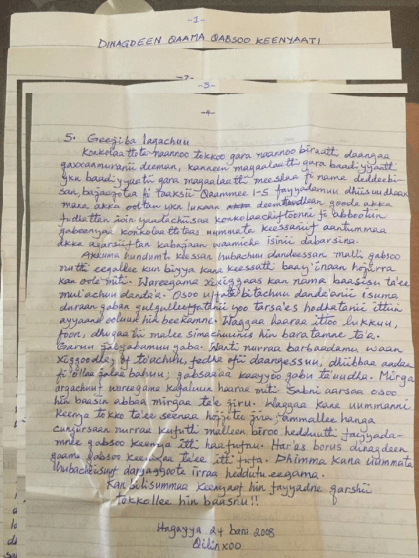 -1-
DINAGDEEN QAAMA QABSOO KEENYAATI
-2-
-3-
-4-
5. Geejiba lagachuu
Konkolaattota naannoo tokkoo gara naannoo biraatti daangaa
qaxxaamuranii deeman, kanneen magaalaatti gara baadiyyaatti
ykn baadiyyaatii gara magaalaatti meeshaa fi name deddeebi-
san, bajaajota fi taaksii Qaammee 1-5 fayyadamuu dhiisuudhaan
mana akka ooltan ykn lukaan deemuudhaan goode akka
fudhattan join yaadachiisaa konkolaachiftoonni fi abbootiin
qabeenyaa konkolaattotaas ummata keessaniif aantummaa
akka agarsiiftan kabajaan waamicha isinii dabarsina.
Akkuma hundumti keessan hubachuu dandeessan malli qabsoo
nutti eegallee kun biyya kana keessatti bay'inaan hojiirra
kan oole miti. Wareegama xiqqaas kan nama baasisu ta'ee
mul'achuu danda'a. Osoo bitachuu dandeenii isuma
duraan qaban gulgulleeffatanii yoo tarsa'es hodhatanii ittiin
ayyaana ooluun hin beekamne. Waggaa haaraa ittoo lukkuu,
foon, dhugaatii malee simachuunis hin bara tamne ta'a.
Garuu jabyaabumuu qaba. Wanti nurraa barbaadamu, waan
xiqqoodha,
fi ollaa
argachuuf wareegama kafaluun haaraa miti. Sabni aarsaa osoo
hin baasin abbaa mirgaa ta'e hin jiru. Waggaa kana uummanni
keenya tokko ta'ee seenaa hojjetee jira. Ammallee hanga
cunqursaan nurraa kufutti malleen biroo hedduutti fayyada-
mnee qabsoo keenya itti haafufnu. Har'as borus dinagdeen
qaama qabsoo keenyaa ta'ee itti fufa. Dhimma kana uummata
hubachiisuuf dargaggoota irraa hedduutu eegama.
Kan bilisummaa keenyaaf hin fayyadne qarshii
tokkollee hin baasnu!!
Hagayya 24 bara 2008
Qilinxoo